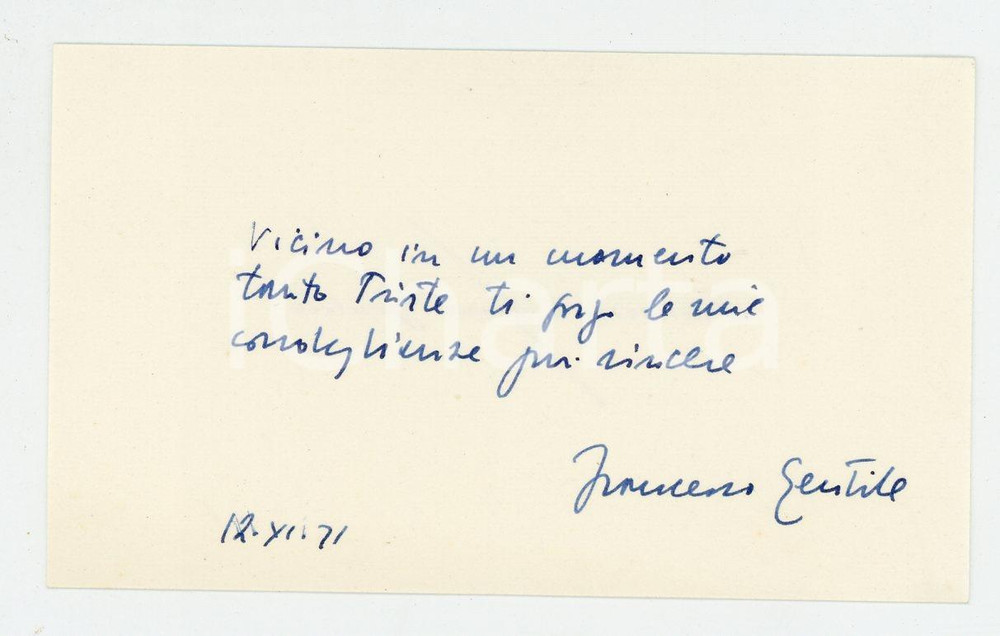 Vicino in un momento
tanto triste ti porgo le mie
condoglianze più sincere
Francesco Gentile
12.XI.71
iCharta